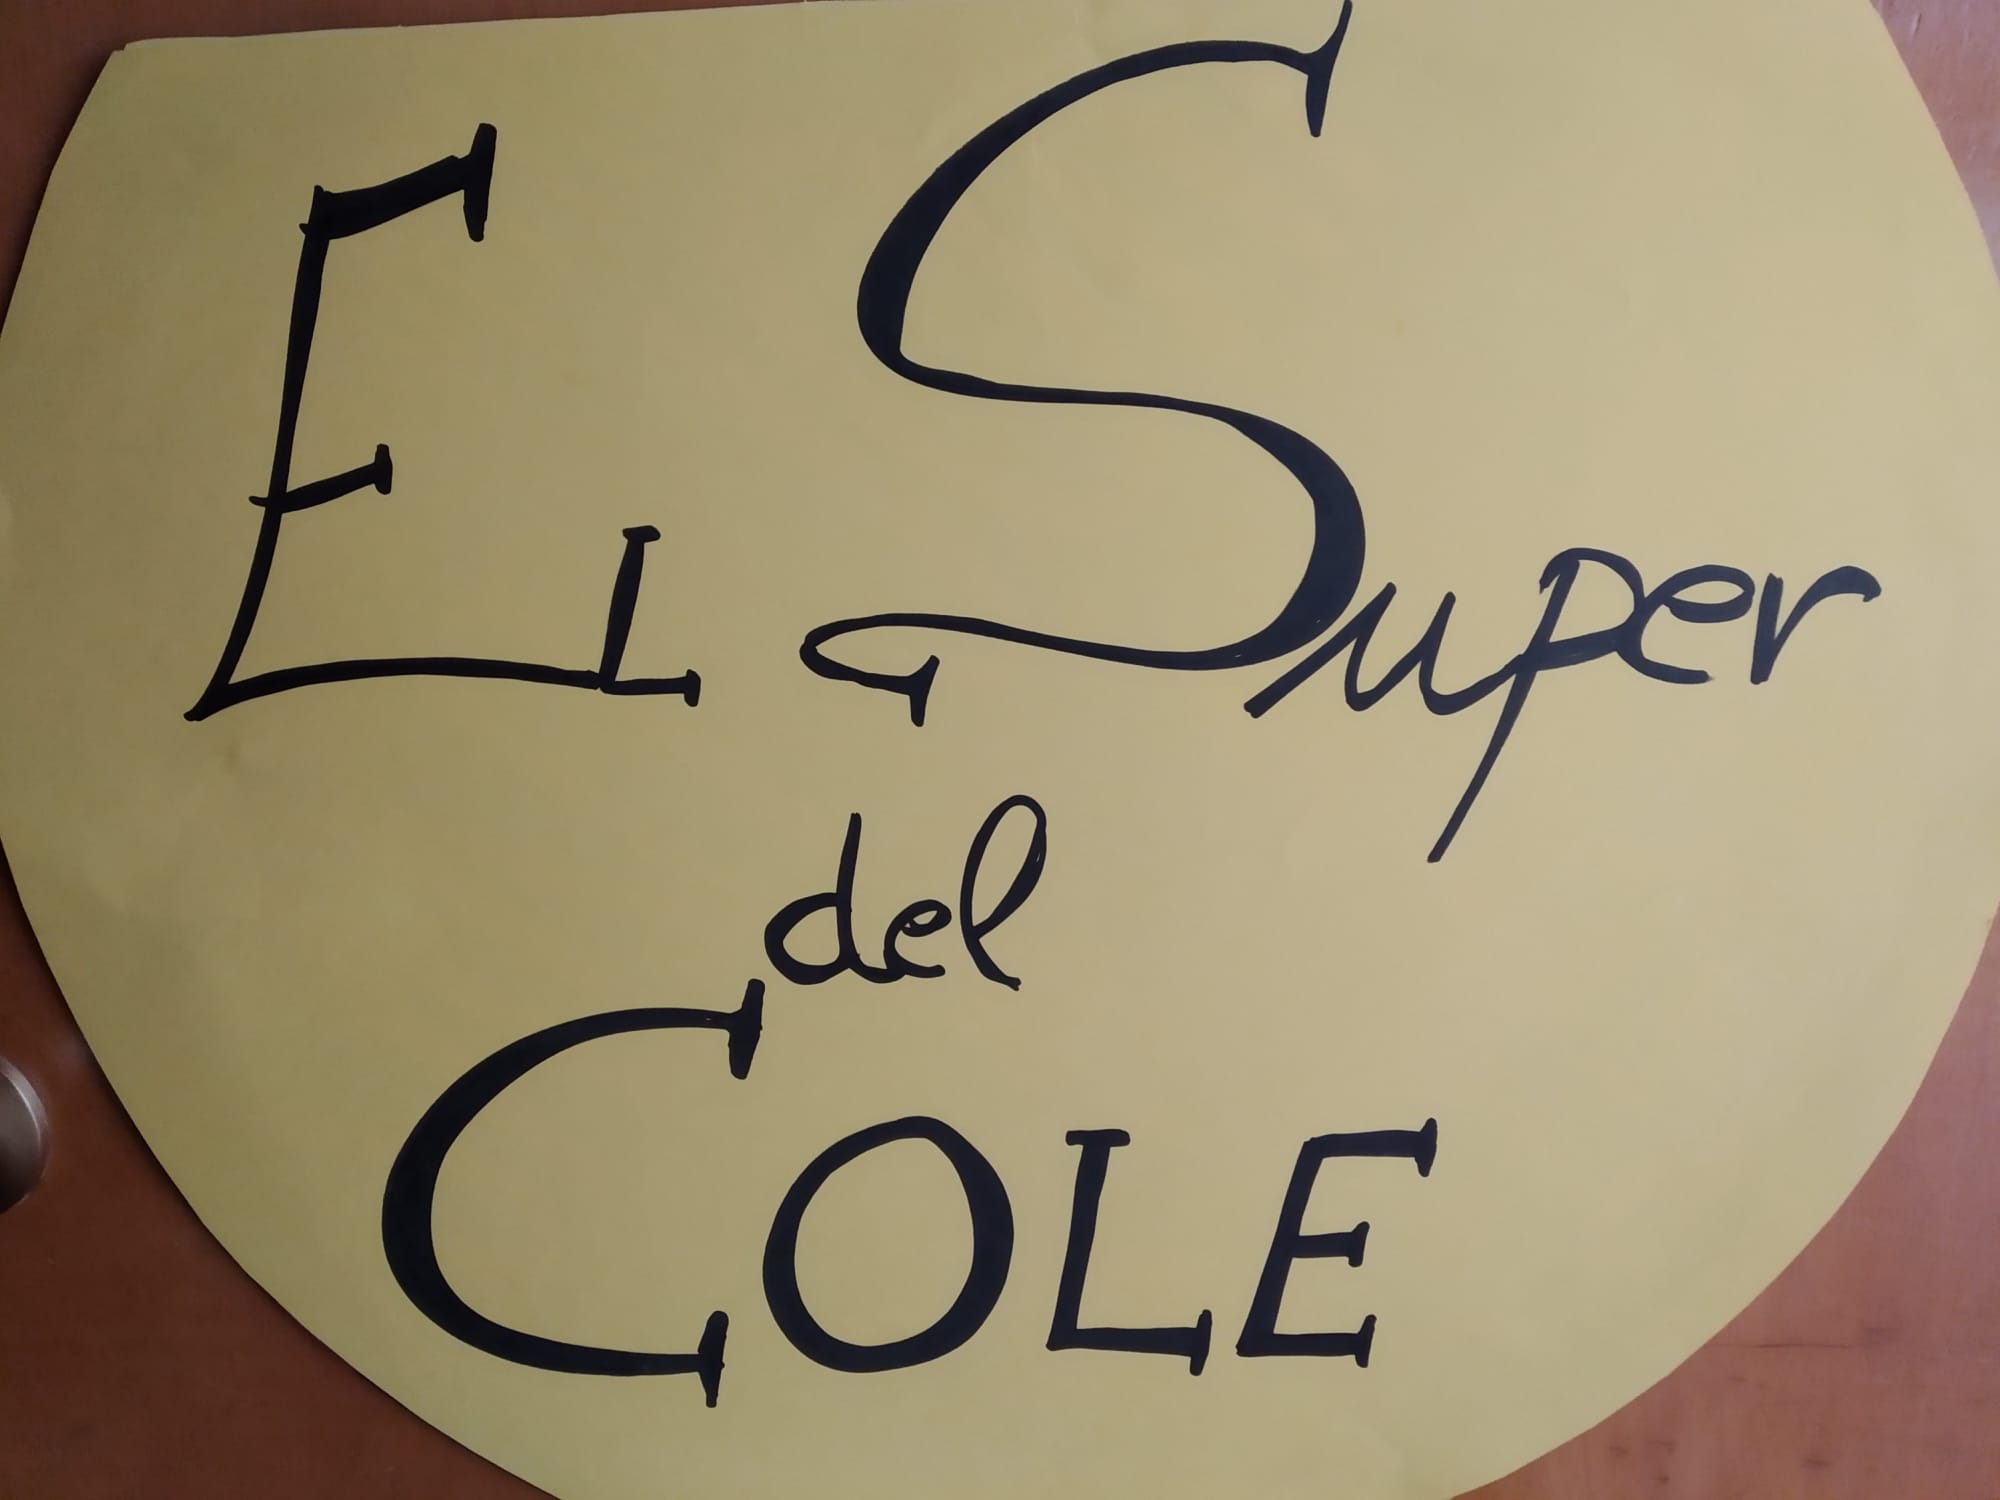 El Super
del
COLE